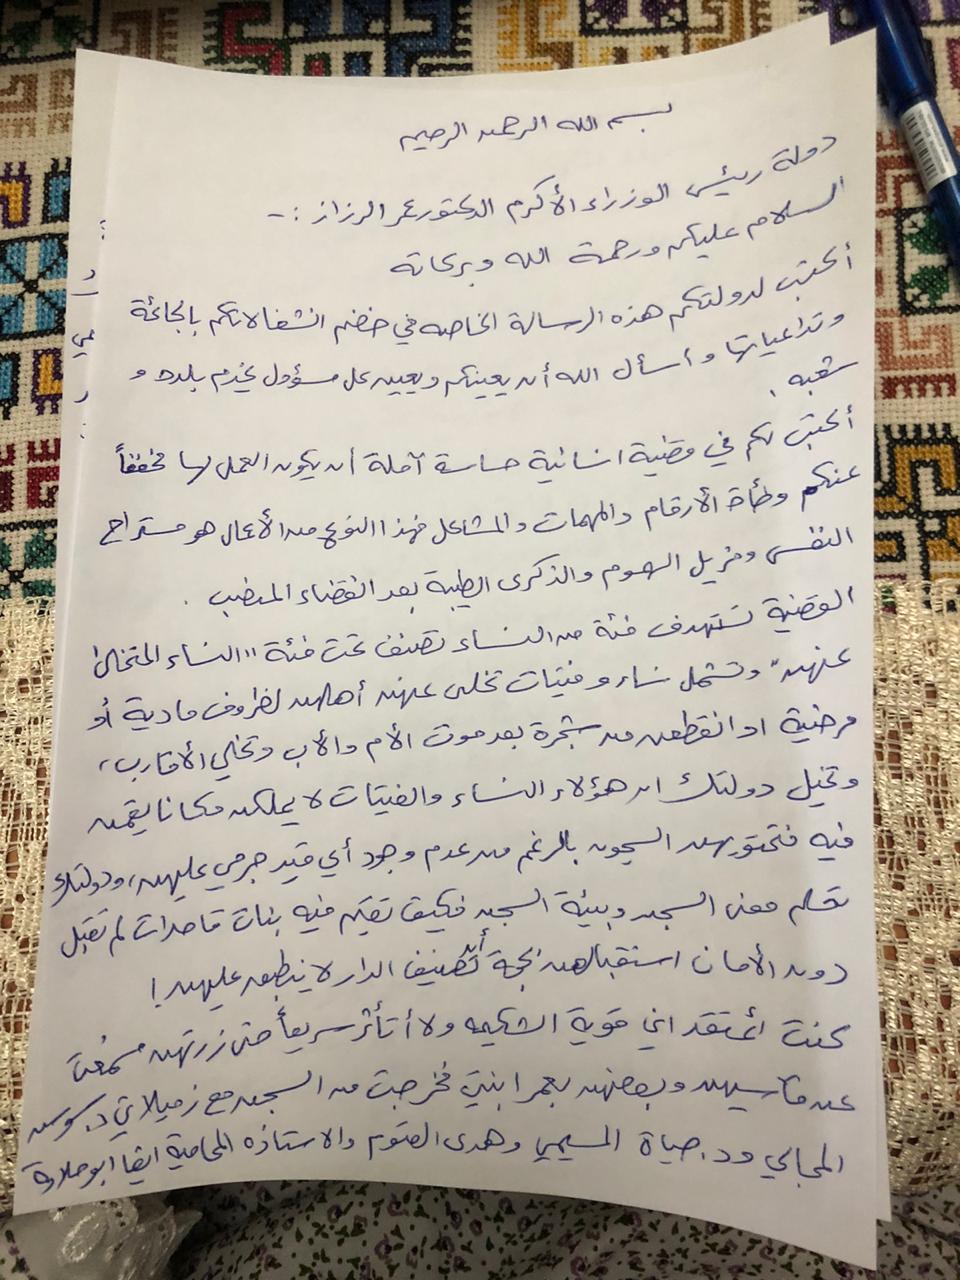 بسم الله الرحمن الرحيم
دولة رئيس الوزراء الأكرم الدكتور عمر الرزاز :-
السلام عليكم ورحمة الله وبركاته
أكتب لدولتكم هذه الرسالة الخاصه في خضم انشغالاتكم بالجائحة
وتداعياتها وأسأل الله أن يعينكم ويعين كل مسؤول يخدم بلده و
شعبه .
أكتب لكم في قضية انسانية حساسة آملة أن يكون العمل لها مخففاً
عنكم وطأة الأرقام والمهمات والمشاغل فهذا النوع من الأعمال هو مستراح
النفس ومزيل الهموم والذكرى الطيبة بعد انقضاء المنصب .
القضية تستهدف فئة من النساء تصنف تحت فئة "النساء المتخلى
عنهن" وتشمل نساء وفتيات تخلى عنهن أهلهن لظروف مادية أو
مرضية او انقطعن من شجرة بعد موت الأم والأب وتخلي الأقارب،
وتخيل دولتك ان هؤلاء النساء والفتيات لا يملكن مكانا يقمن
فيه فتحتويهن السجون بالرغم من عدم وجود أي قيد جرمي عليهن، ودولتك
تعلم معنى السجن وبيئة السجن فكيف تقيم فيه بنات قاصرات لم تقبل
دور الأمان استقبالهن بحجة أن تصنيف الدار لا ينطبق عليهن !
كنت أعتقد اني قوية الشكيمه ولا أتأثر سريعاً حتى زرتهن سمعت
عن مآسيهن وبعضهن بعمر ابنتي فخرجت من السجن مع زميلاتي د. سوسن
المجالي ود. حياة المسيمي وهدى العتوم والاستاذه المحامية انغا ابو حلاوة